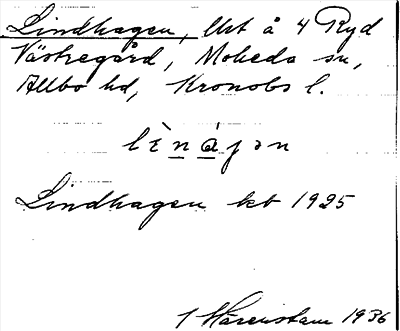 Lindhagen, lht å 4 Ryd
Västregård, Moheda sn,
Allbo hd, Kronobs l.
lènájǝn
Lindhagen kb 1925
1936